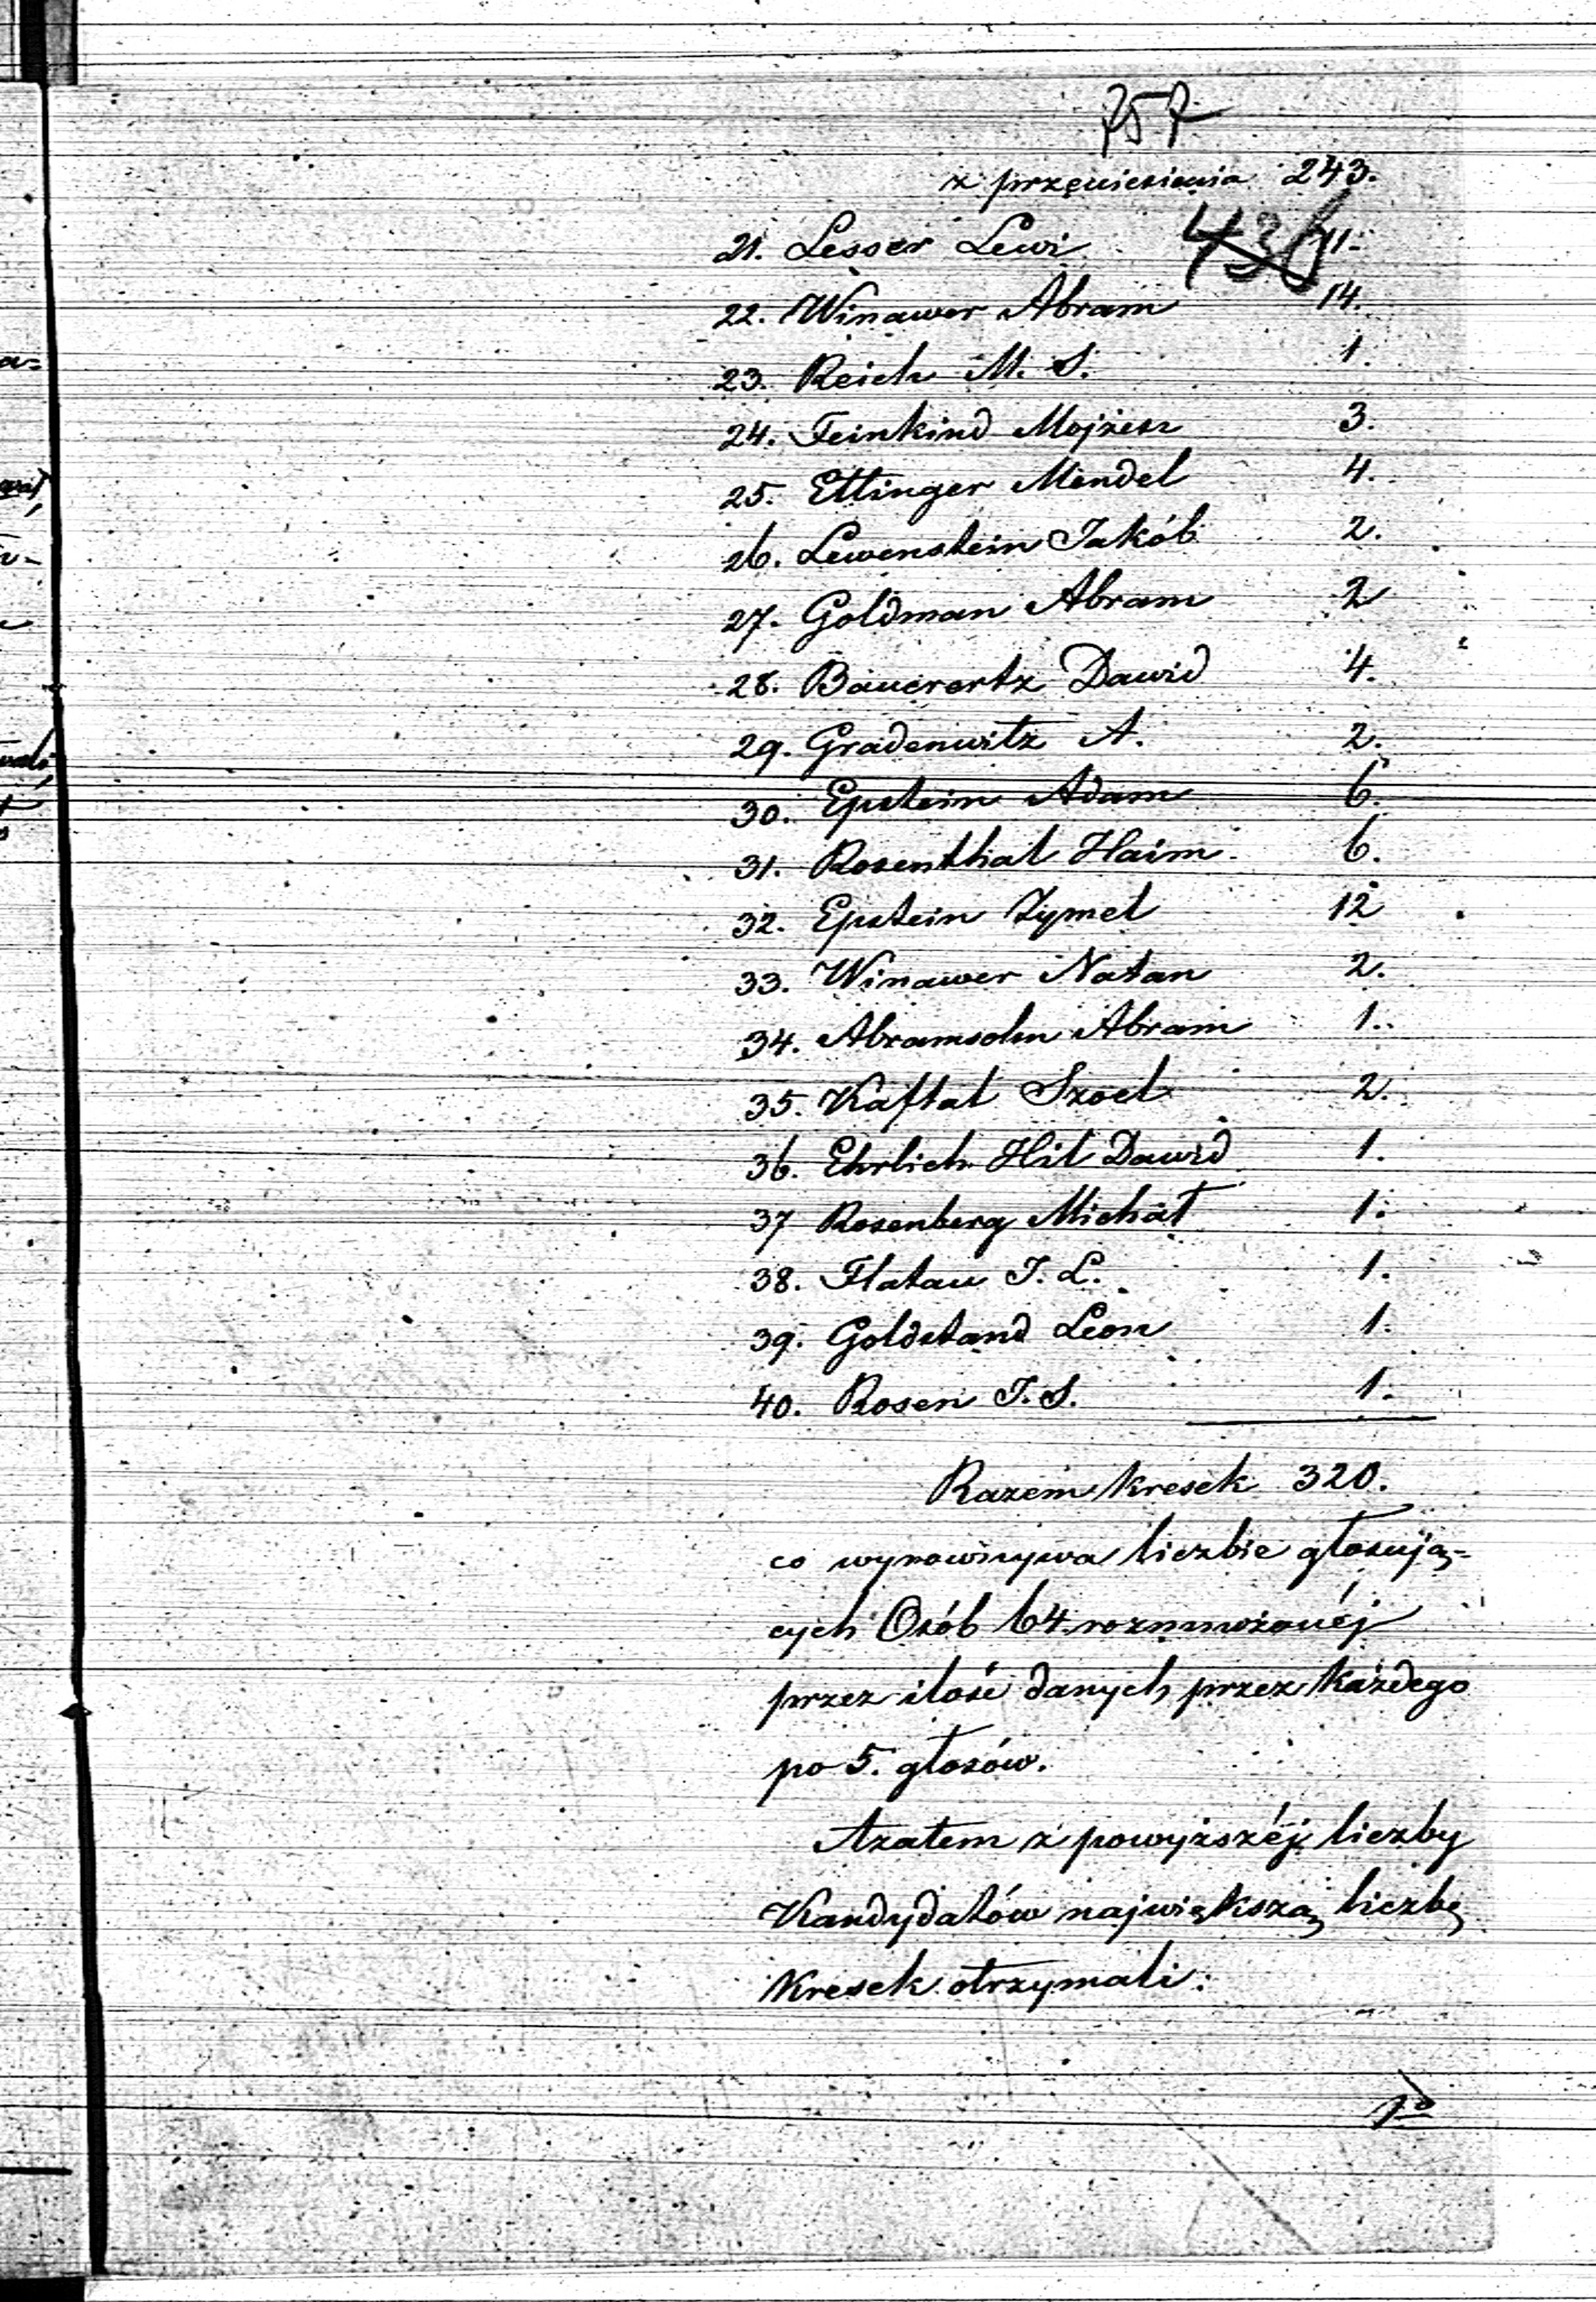 757
z przeniesienia 243.
436
21. Lesser Lewi 11.
22. Winawer Abram 14.
23. Reich M. S. 1.
24. Feinkind Mojżesz 3.
25. Ettinger Mendel 4.
26. Lewenstein Jakób 2.
27. Goldman Abram 2
28. Bauerertz Dawid 4.
29. Gradenwitz A. 2.
30. Epstein Adam 6.
31. Rosenthal Haim 6.
32. Epstein Zymel 12
33. Winawer Natan 2.
34. Abramsohn Abram 1.
35. Kaftal Szoel 2.
36. Ehrlich Hil Dawid 1.
37 Rosenberg Michał 1.
38. Flatau J. L. 1.
39. Goldstand Leon 1.
40. Rosen J. S. 1.
Razem kresek 320.
co wyrownywa liczbie głosują-
cych Osób 64 rozmnożonéj
przez ilość danych przez każdego
po 5. głosów.
Azatem z powyższéj liczby
Kandydatów największą liczbę
Kresek otrzymali:
1º